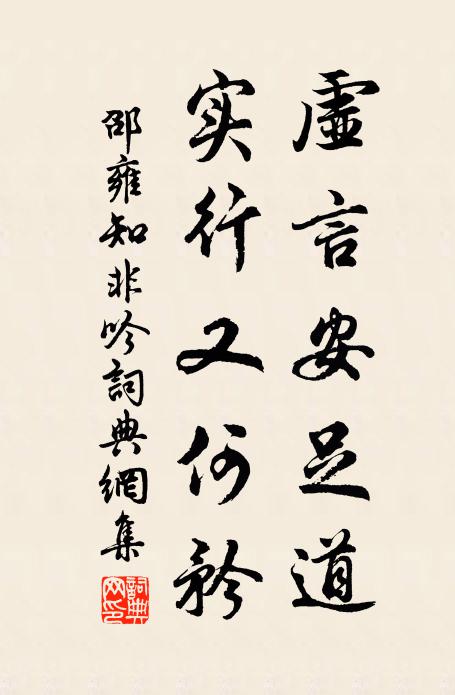 虛言安足道
实行又何矜
邵雍知非吟詞典網集
詞典网印